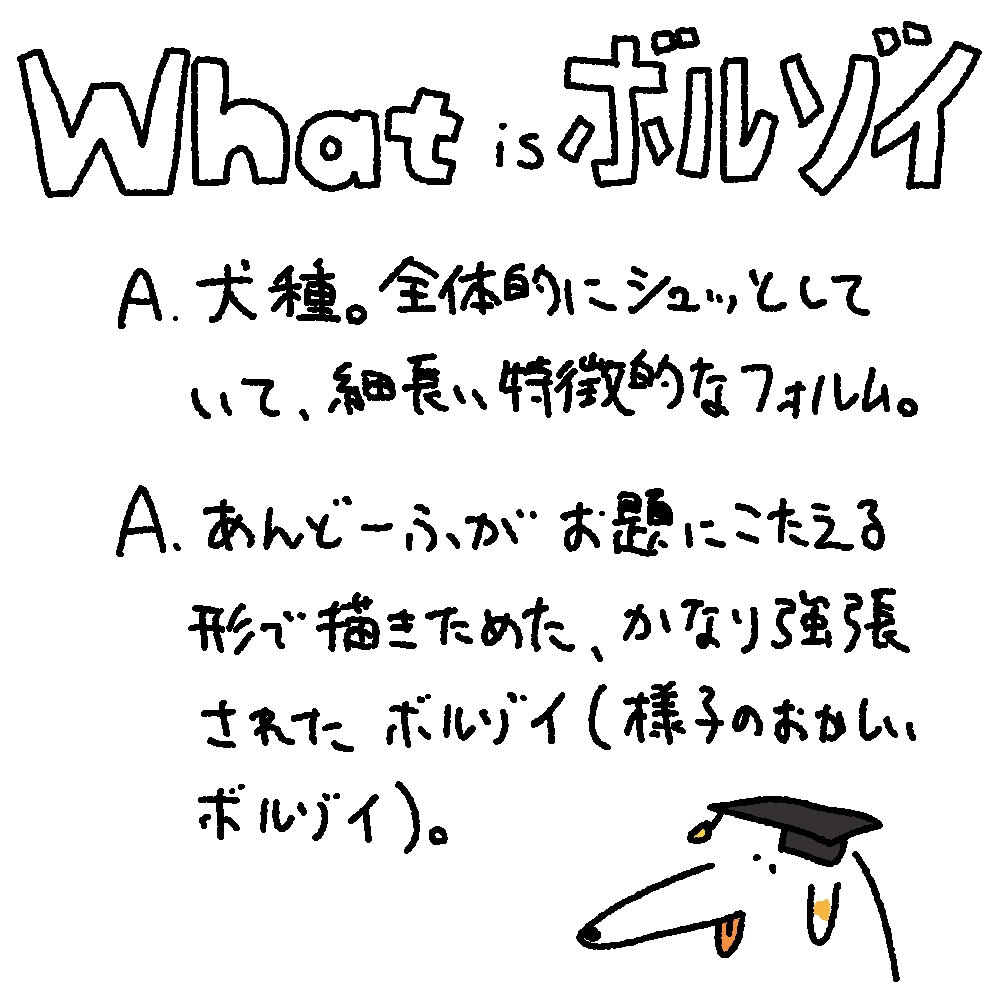 What is ボルゾイ
A. 犬種。全体的にシュッとして
いて、細長い特徴的なフォルム。
A. あんどーふぃがお題にこたえる
形で描きためた、かなり強張
されたボルゾイ(様子のおかしい
ボルゾイ)。